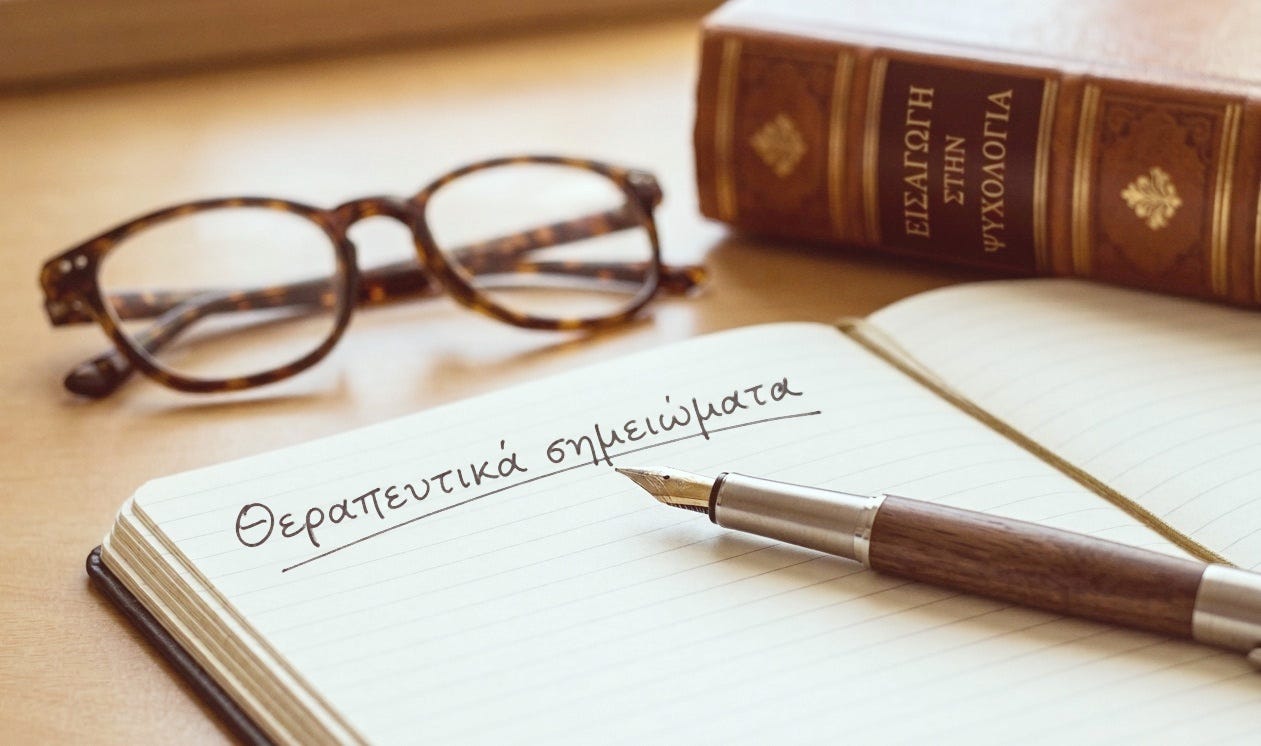 ΕΙΣΑΓΩΓΗ
ΣΤΗΝ
ΨΥΧΟΛΟΓΙΑ
Θεραπευτικά σημειώματα